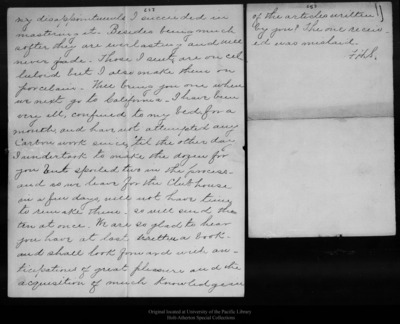 my disappointments I succeeded in
mastering it. Besides being much
softer they are everlasting and will
never fade. Those I sent are on cel-
luloid but I also make them on
porcelain. Will bring you one when
we next go to California. I have been
very ill, confined to my bed for a
month and have not attempted any
Carbon work since, 'til the other day
I undertook to make the dozen for
you but spoiled two in the process
and as we leave for the Clubhouse
in a few days will not have time
to remake them. so will send the
ten at once. We are so glad to hear
you have at last written a book
and shall look forward with an-
ticipations of great pleasure and the
acquisition of much knowledge
of the articles written
by you? The one receiv-
ed was mashed.
Original located at University of the Pacific Library
Holt-Atherton Special Collections